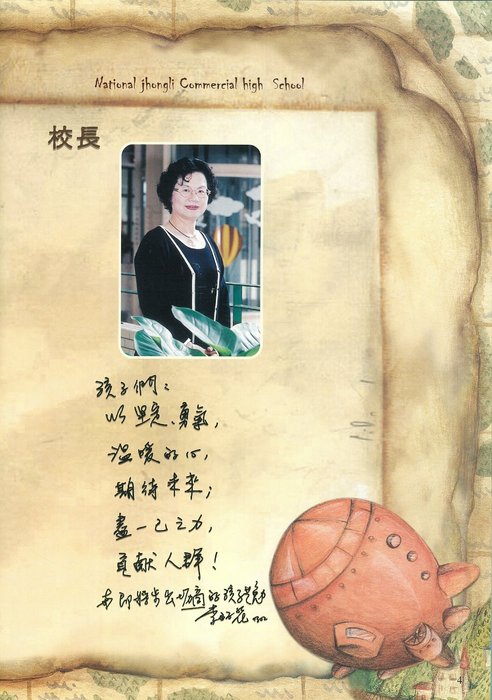 National jhongli Commercial high School
校長
孩子們：
以堅定、勇氣，
溫暖的心，
期待未來；
盡一己之力，
貢獻人群！
即將步出壢商的孩子共勉
4